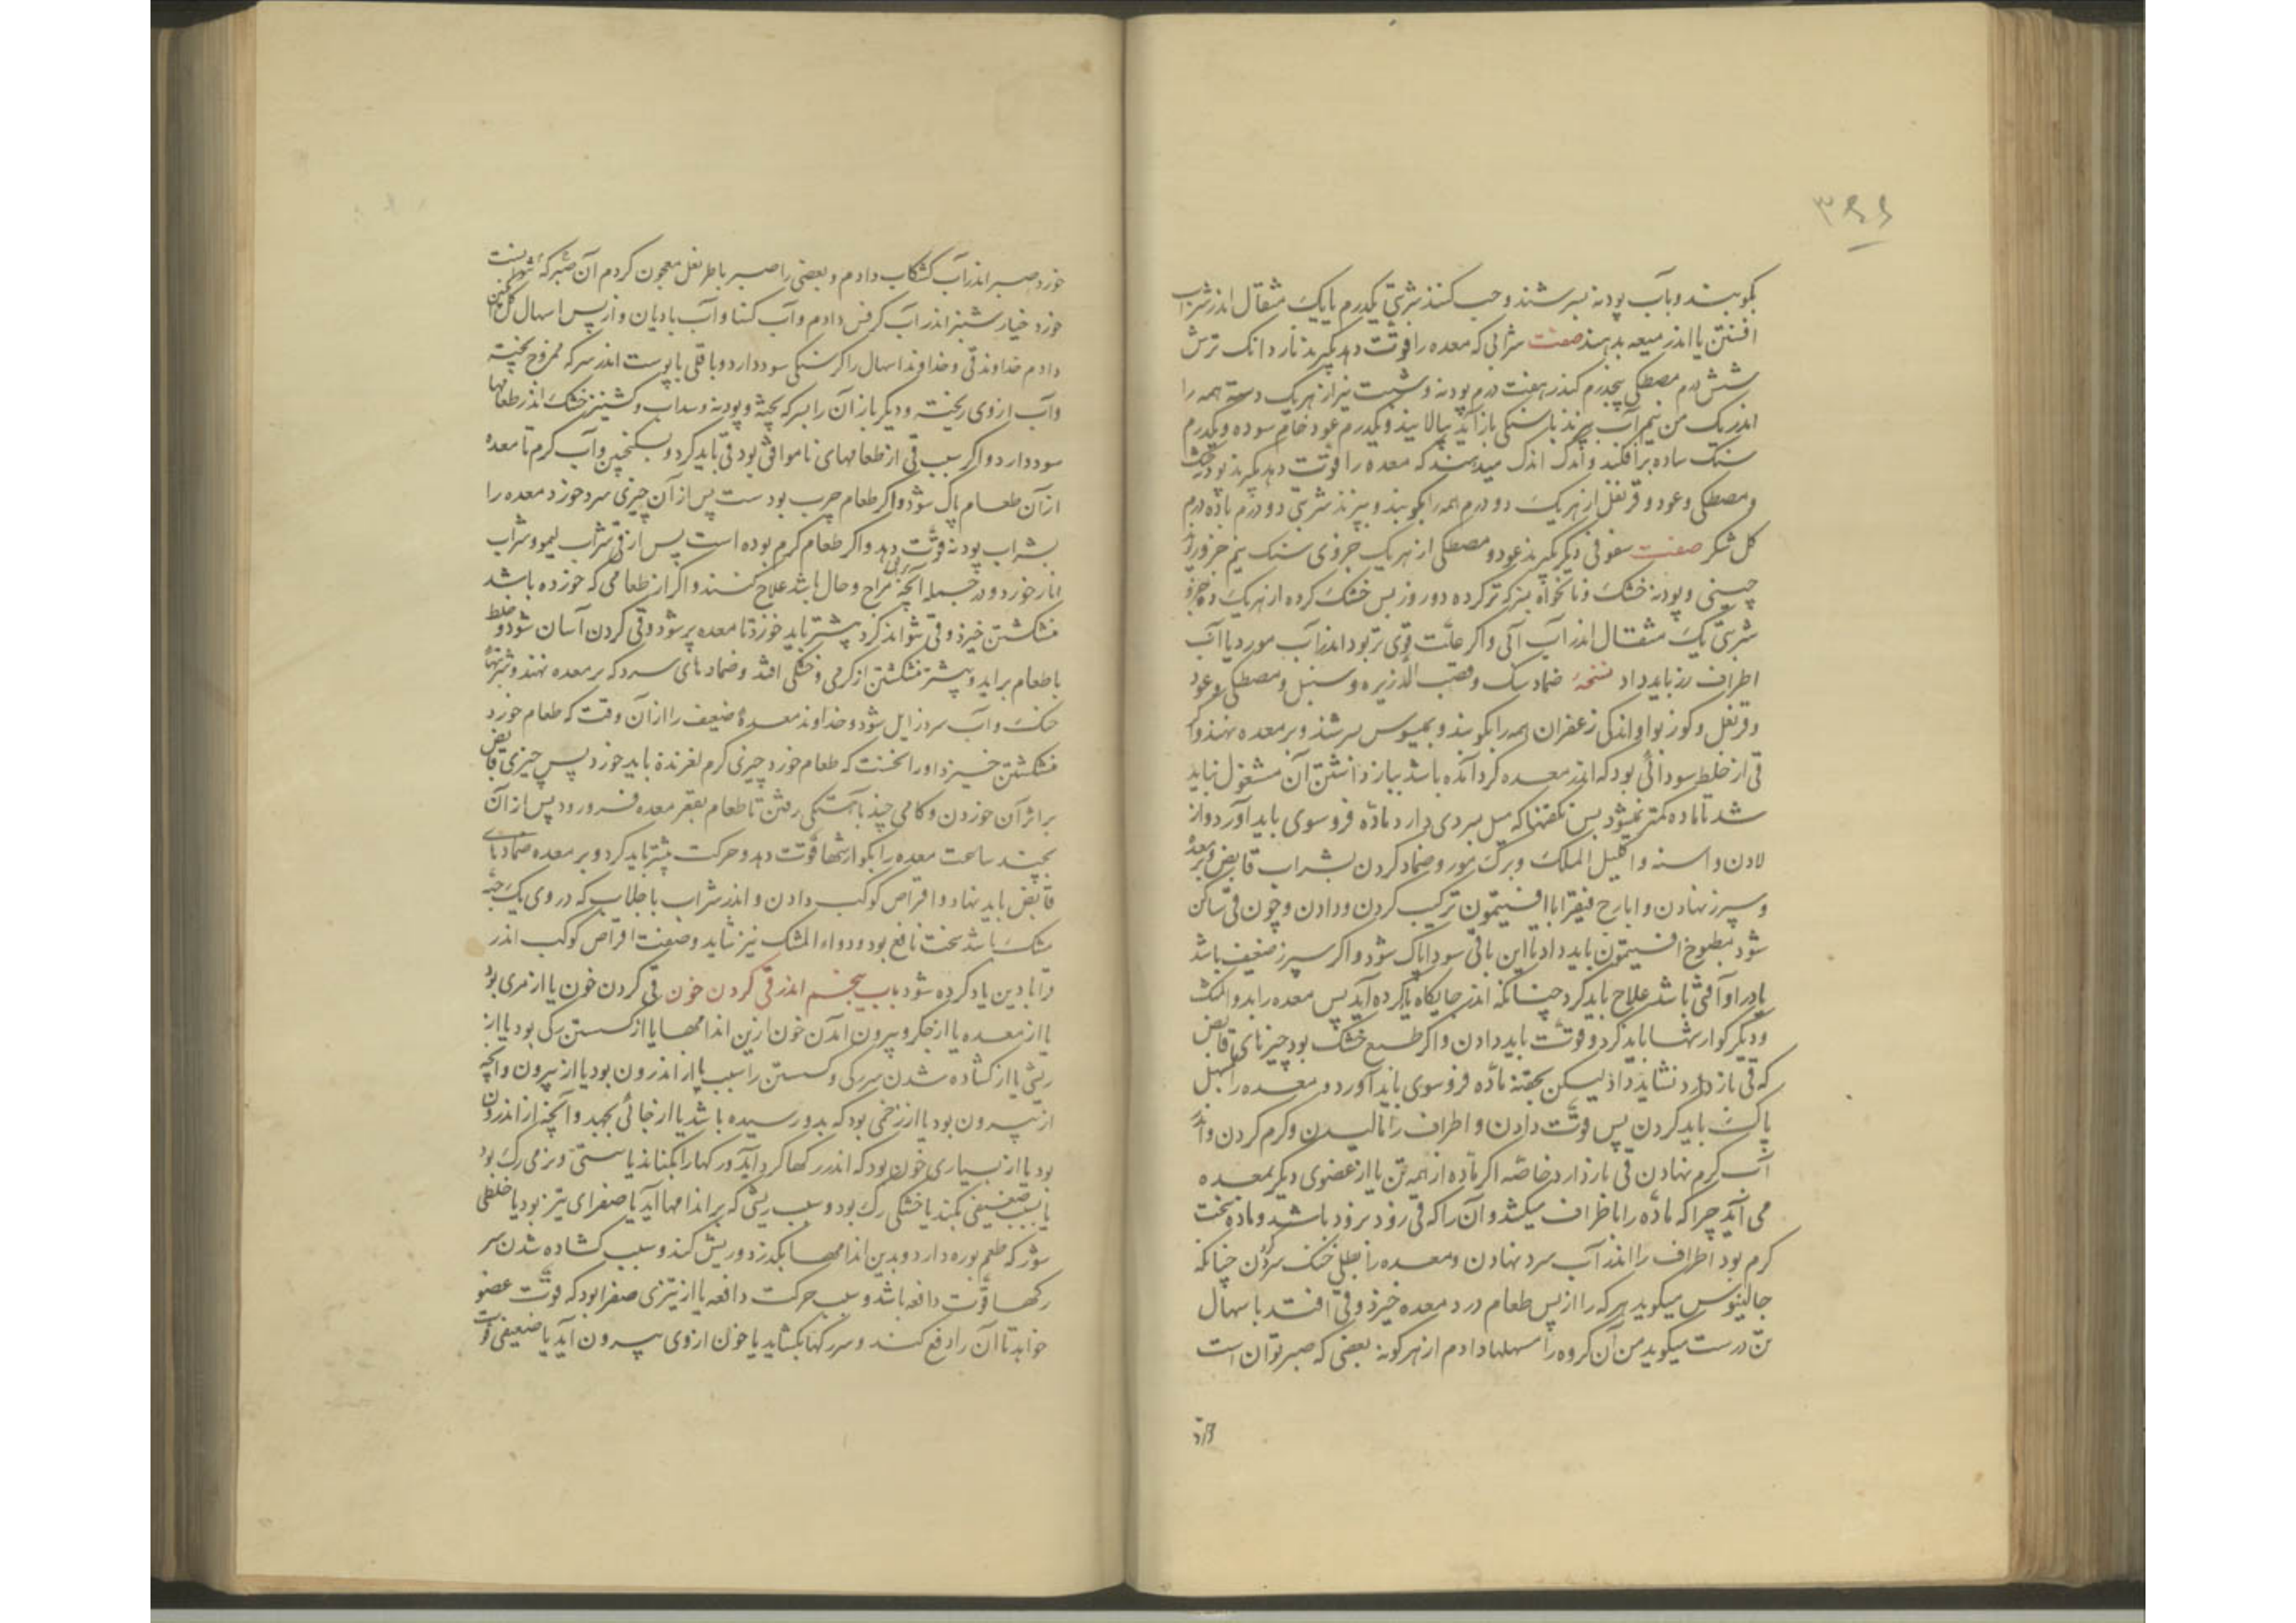 ۳۴۶
بکوبند و بآب پودنه بسرشند و حب کنند شربتی یکدرم یا یک مثقال اندر شراب
افسنتن یا اندر میعه بدهند صفت شرابی که معده را قوّت دهد بگیرند ناردانک ترش
شش درم مصطکی پنجدرم کندر هفت درم پودنه و شبت تیز از هریک دسته همه را
اندر یک من نیم آب بپزند تا بسنگی باز آید بپالایند و یکدرم عود خام سوده و یکدرم
سنک ساده برافکنند و اندک اندک میدهند که معده را قوّت دهد بگیرند پودنه خشک
و مصطکی و عود و قرنفل از هریک دو درم همه را بکوبند و ببزند شربتی دو درم با ده درم
کل شکر صفت سفوفی دیگر بگیرند عود و مصطکی از هریک جزوی سنک نیم جزو زرد
چینی و پودنه خشک و نانخواه بسرکه تر کرده دو روز پس خشک کرده از هریک ده جزو
شربتی یک مثقال اندر آب آبی و اگر علّت قوی تر بود اندر آب مورد یا آب
اطراف رز باید داد نسخهٔ ضماد سک و قصب الذریره و سنبل و مصطکی و عود
و قرنفل و کوز بوا و اندکی زعفران همه را بکوبند و بمیسوس بسرشند و بر معده نهند و اکر
قی از خلیط سودائی بود که اندر معده کرد آمده باشد بباز داشتن آن مشغول نباید
شد تا ماده کمتر نمیشود پس نکفتنها که میل ببردی دارد ماده فروسوی باید آورد و از
لادن و اسنه و اکلیل الملک و برک مورد و ضماد کردن بشراب قابض و بر معده
و سپرز نهادن و ایارج فیقرا با افتیمون ترکیب کردن و دادن و چون قی ساکن
شود مطبوخ افتیمون باید داد تا این باقی سودا پاک شود و اکر سپرز ضعیف باشد
یا در او آفتی باشد علاج باید کرد چنانکه اندر جایکاه یاد کرده آید پس معده را بدواءالمشک
و دیگر کوارشها باید کرد و قوّت باید دادن و اکر طبع خشک بود چیزهای قابض
که قی باز دارد نشاید داد لیکن بحقنه مادّه فروسوی باید آورد و معده را بمسهل
پاک باید کردن پس قوّت دادن و اطراف را مالیدن و کرم کردن و اندر
آب کرم نهادن قی باز دارد خاصّه اکر مادّه از همه تن یا از عضوی دیگر بمعده
می آید چرا که مادّه را باطراف میکشد و آن را که قی زود بزود باشد و ماده سخت
کرم بود اطراف را اندر آب سرد نهادن و معده را بطلی خنک سرد کردن چنانکه
جالینوس میکوید هرکه را از پس طعام درد معده خیزد و قی افتد باسهال
تن درست میکوید من آن کروه را مسهلها دادم از هرکونه بعضی که صبر توان است
خورد صبر اندر آب کشکاب دادم و بعضی را صبر باطریفل معجون کردم آن صبر که نتوانست
خورد خیارشنبر اندر آب کرفس دادم و آب کسنا و آب بادیان و از پس اسهال کل انکبین
دادم خداوند قی و خداوند اسهال را کرسنکی سود دارد و باقلی با پوست اندر سرکه ممزوج پخته
و آب از وی ریخته و دیگر باز آن را بسرکه پخته و پودنه و سداب و کشنیز خشک اندر طعامها
سود دارد و اکر سبب قی از طعامهای ناموافق بود قی باید کرد و بسکنجبین و آب کرم تا معده
از آن طعام پاک شود و اکر طعام چرب بودست پس از آن چیزی سرد خورد معده را
بشراب پودنه قوّت دهد و اکر طعام کرم بوده است پس از قی شراب لیمو و شراب
انار خورد و در جمله آنچه مزاج و حال باشد علاج کنند و اکر از طعامی که خورده باشد
منش کشتن خیزد و قی نتواند کرد بیشتر باید خورد تا معده پر شود و قی کردن آسان شود و خلط
با طعام برآید و بیشتر منش کشتن از کرمی و خشکی افتد و ضمادهای سرد که بر معده نهند و شربتهاء
خنک و آب سرد زایل شود و خداوند معدهٔ ضعیف را از آن وقت که طعام خورد
منش کشتن خیزد او را نخست که طعام خورد چیزی کرم لغزنده باید خورد پس چیزی قابض
بر اثر آن خوردن و کامی چند باهستکی رفتن تا طعام بقعر معده فرو رود پس از آن
بچند ساعت معده را بکوارشها قوّت دهد و حرکت بیشتر باید کرد و بر معده ضمادهای
قابض باید نهاد و اقراص کوکب دادن و اندر شراب با جلاب که در وی یک حبّه
مشک باشد سخت نافع بود و دواءالمشک نیز شاید و صفت اقراص کوکب اندر
قرابادین یاد کرده شود باب پنجم اندر قی کردن خون قی کردن خون یا از مری بود
یا از معده یا از جکر و بیرون آمدن خون ازین اندامها یا از کسستن رکی بود یا از
ریشی یا از کشاده شدن سر رکی و کسستن را سبب یا از اندرون بود یا از بیرون و آنچه
از بیرون بود یا از زخمی بود که بدو رسیده باشد یا از جائی بجهد و آنچه از اندرون
بود یا از بسیاری خون بود که اندر رکها کرد آید و رکها را بکفاند یا سستی و نرمی رک بود
یا بسبب ضعیفی بکفد یا خشکی رک بود و سبب ریشی که بر اندامها آید یا صفرای تیز بود یا خلطی
شور که طعم بوره دارد و بدین اندامها بکذرد و ریش کند و سبب کشاده شدن سر
رکها قوّت دافعه باشد و سبب حرکت دافعه یا از تیزی صفرا بود که قوّت عضو
خواهد تا آن را دفع کند و سر رکها بکشاید یا خون از وی بیرون آید یا ضعیفی قوّت